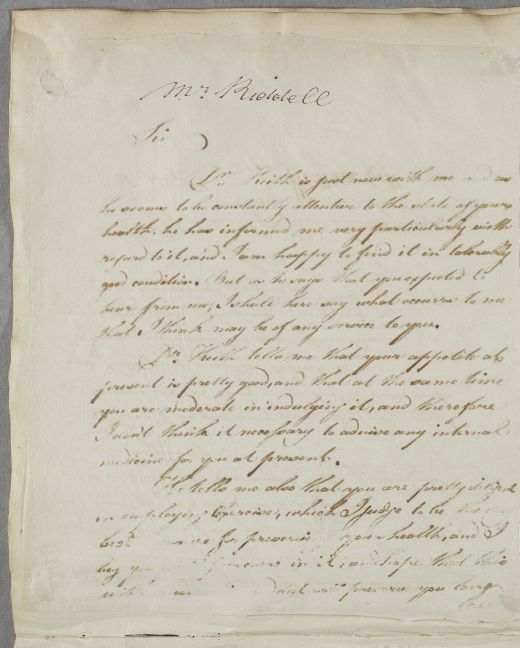 Mr. Riddell
Sir
Dr. Keith is just now with me and as
he seems to be constantly attentive to the state of your
health, he has informed me very particularly with
regard to it, and I am happy to find it in tolerably
good condition. But as he says that you expected to
hear from me, I shall here say what occurrs to me
that I think may be of any service to you.
Dr. Keith tells me that your appetite at
present is pretty good, and that at the same time
you are moderate in indulging it, and therefore
I don't think it necessary to advise any internal
medicine for you at present.
He tells me also that you are pretty diligent
in employing Exercise, which I judge to be the very
best for preserving your health, and I
beg you persevere in it, and hope that this
with will preserve you long